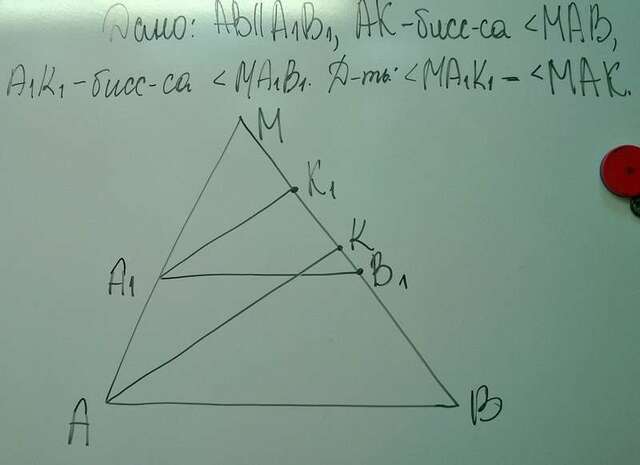 Дано: AB||A₁B₁, AK-бисс-са <MAB,
A₁K₁-бисс-са <MA₁B₁. Д-ть: <MA₁K₁ = <MAK.
M
K₁
K
A₁
B₁
A
B